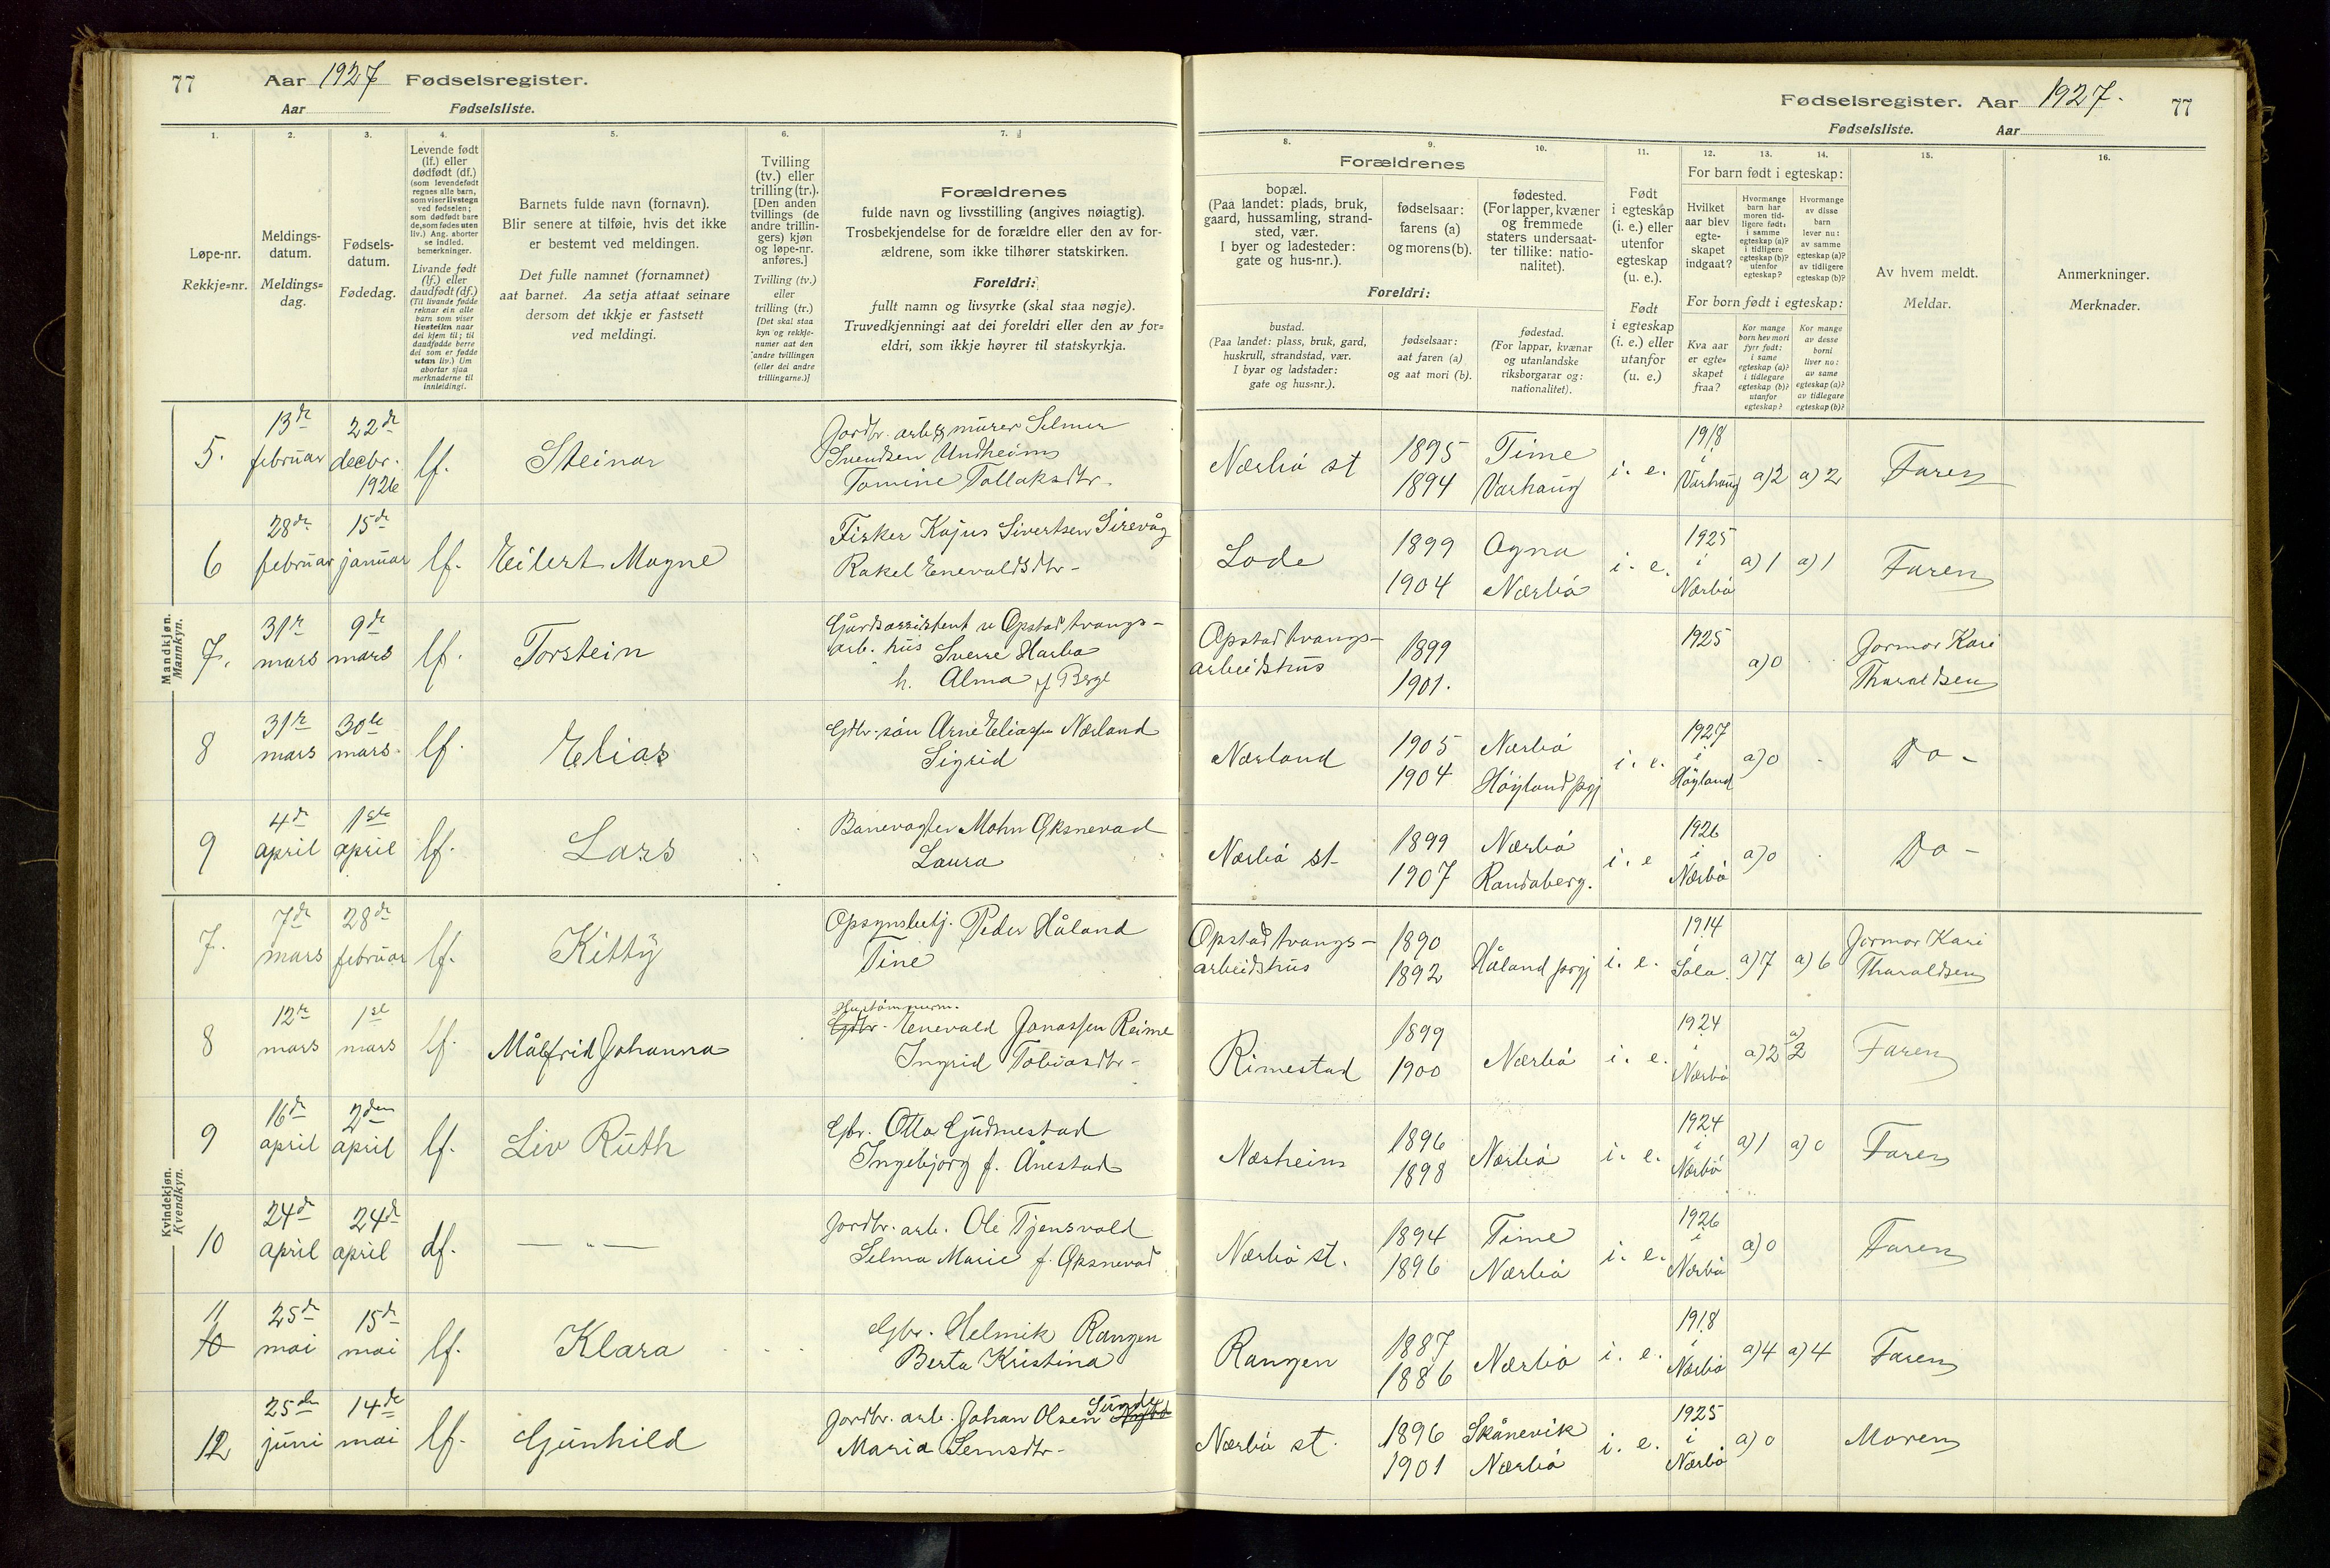 77 Aar 1927 Fødselsregister.
Aar Fødselsliste.
Fødselsregister. Aar 1927. 77
Fødselsliste. Aar
1. 2. 3. 4. 5. 6. 7.
Løpe-nr.
Rekkje=nr.
Meldings-
datum.
Meldings=
dag.
Fødsels-
datum.
Fødedag.
Levende født
(lf.) eller
dødfødt (df.)
(som levendefødt
regnes alle barn,
som viser livstegn
ved fødselen;
som dødfødt bare
de, som fødes uten
liv.) Ang. aborter
se indled.
bemerkninger.
Livande født
(lf.) eller
daudfødt (df.)
(Til livande fødde
reknar ein alle
barn som viser
livsteikn naar
dei kjem til; til
daudfødde berre
dei som er fødde
utan liv.) Um
abortar sjaa
merknaderne til
innleidingi.
Barnets fulde navn (fornavn).
Blir senere at tilføie, hvis det ikke
er bestemt ved meldingen.
Det fulle namnet (fornamnet)
aat barnet. Aa setja attaat seinare
dersom det ikkje er fastsett
ved meldingi.
Tvilling
(tv.) eller
trilling (tr.).
[Den anden
tvillings (de
andre trillin-
gers) kjøn
og løpe-nr.
anføres.]
Tvilling (tv.)
eller
trilling (tr.)
[Det skal staa
kyn og rekkje-
numer aat den
andre tvillingen
(eller dei andre
trillingarne.)]
Forældrenes
fulde navn og livsstilling (angives nøiagtig).
Trosbekjendelse for de forældre eller den av for-
ældrene, som ikke tilhører statskirken.
Foreldri:
fullt namn og livsyrke (skal staa nøgje).
Truvedkjenningi aat dei foreldri eller den av for=
eldri, som ikkje høyrer til statskyrkja.
8. 9. 10. 11. 12. 13. 14. 15. 16.
Forældrenes
bopæl.
(Paa landet: plads, bruk,
gaard, hussamling, strand-
sted, vær.
I byer og ladesteder:
gate og hus-nr.).
fødselsaar:
farens (a)
og morens (b).
fødested.
(For lapper, kvæner
og fremmede
staters undersaat-
ter tillike: natio-
nalitet).
Foreldri:
bustad.
(Paa landet: plass, bruk, gard,
huskrull, strandstad, vær.
I byar og ladstader:
gate og hus=nr.).
fødselsaar:
aat faren (a)
og aat mori (b).
fødestad.
(For lappar, kvænar
og utanlandske
riksborgarar og:
nationalitet).
Født
i egteskap
(i. e.) eller
utenfor
egteskap
(u. e.).
Født
i egteskap
(i. e.) eller
utanfor
(u. e.)
For barn født i egteskap:
Hvilket
aar blev
egte-
skapet
indgaat?
Hvormange
barn har
moren tid-
ligere født:
i samme
egteskap (a)?
i tidligere
egteskap (b)?
utenfor
egteskap?
Hvormange
av disse
barn
lever nu:
av samme
egteskap (a)?
av tidligere
egteskap (b)?
For born født i egteskap:
Kva aar
er egte=
skapet
fraa?
Kor mange
born hev mori
fyrr født:
i same
egteskap (a)?
i tidlegare
egteskap (b)?
utanfor
egteskap?
Kor mange
av desse
borni
liver no:
av same
egteskap (a)?
av tidlegare
egteskap (b)?
Av hvem meldt.
Meldar.
Anmerkninger.
Merknader.
Mandkjøn.
Mannkyn.
5. 13de februar 22de decbr. 1926 lf. Steinar
Jordbr. arb. & murer Selmer
Svendsen Undheim
Tomine Tollaksdtr.
Nærbö st 1895 1894 Time Varhaug i. e. 1918 i Varhaug a) 2 a) 2 Faren
6 28de februar 15de januar lf. Eilert Magne
Fisker Kajus Sivertsen Sirevåg
Rakel Enevaldsdtr-
Lode 1899 1904 Ogna Nærbö i. e. 1925 i Nærbö a) 1 a) 1 Faren
7. 31te mars 9de mars lf. Torstein
Gårdsassistent v Opstad tvangs-
arb. hus Sverre Harbo
h. Alma f Berge
Opstad tvangs-
arbeidshus 1899 1901. 1925 a) 0 Jormor Kari
Tharaldsen
8 31te mars 30te mars. lf. Elias
Gbr. sön Arne Eliassen Nærland
Sigrid
Nærland 1905 1904 Nærbö Höyland prgj i. e. 1927 i Höyland a) 0 Do -
9 4de april 1ste april lf. Lars
Banevogter Mohn Oksnevad
Laura
Nærbö st- 1899 1907 Nærbö Randaberg. i. e 1926 i Nærbö a) 0 Do -
Kvindekjøn.
Kvendkyn.
7. 7de mars 28de februar lf. Kitty
Opsynsbetj. Peder Håland
Tine
Opstad tvangs-
arbeidshus 1890 1892 Håland prgj i. e. 1914 i Sola. a) 7 a) 6 Jormor Kari
Tharaldsen
8 12te mars 1ste mars lf. Målfrid Johanna
Hustömmerm.
Gbr. Enevald Jonassen Reime
Ingrid Tobiasdtr-
Rimestad 1899 1900 Nærbö i. e. 1924 i Nærbö a) 2 a) 2 Faren
9 16de april 2den april lf. Liv Ruth
Gbr. Otto Gudmestad
Ingebjorg f. Ånestad
Nærheim 1896 1898 Nærbö i. e. 1924 i Nærbö a) 1 a) 0 Faren
10 24de april 24de april df. — " —
Jordbr. arb. Ole Tjensvold
Selma Marie f. Oksnevad
Nærbö st. 1894 1896 Time Nærbö i. e. 1926 i Nærbö a) 0 Faren
11
10 25de mai 15de mai lf. Klara
Gbr. Helmik Rangen
Berta Kristina
Rangen 1887 1886 Nærbö i. e. 1918 i Nærbö a) 4 a) 4 Faren
12 25de juni 14de mai lf. Gunhild
Jordbr. arb. Johan Olsen Sunde
Maria Semsdtr-
Nærbö st. 1896 1901 Skånevik Nærbö i. e. 1925 i Nærbö a) 0 Moren